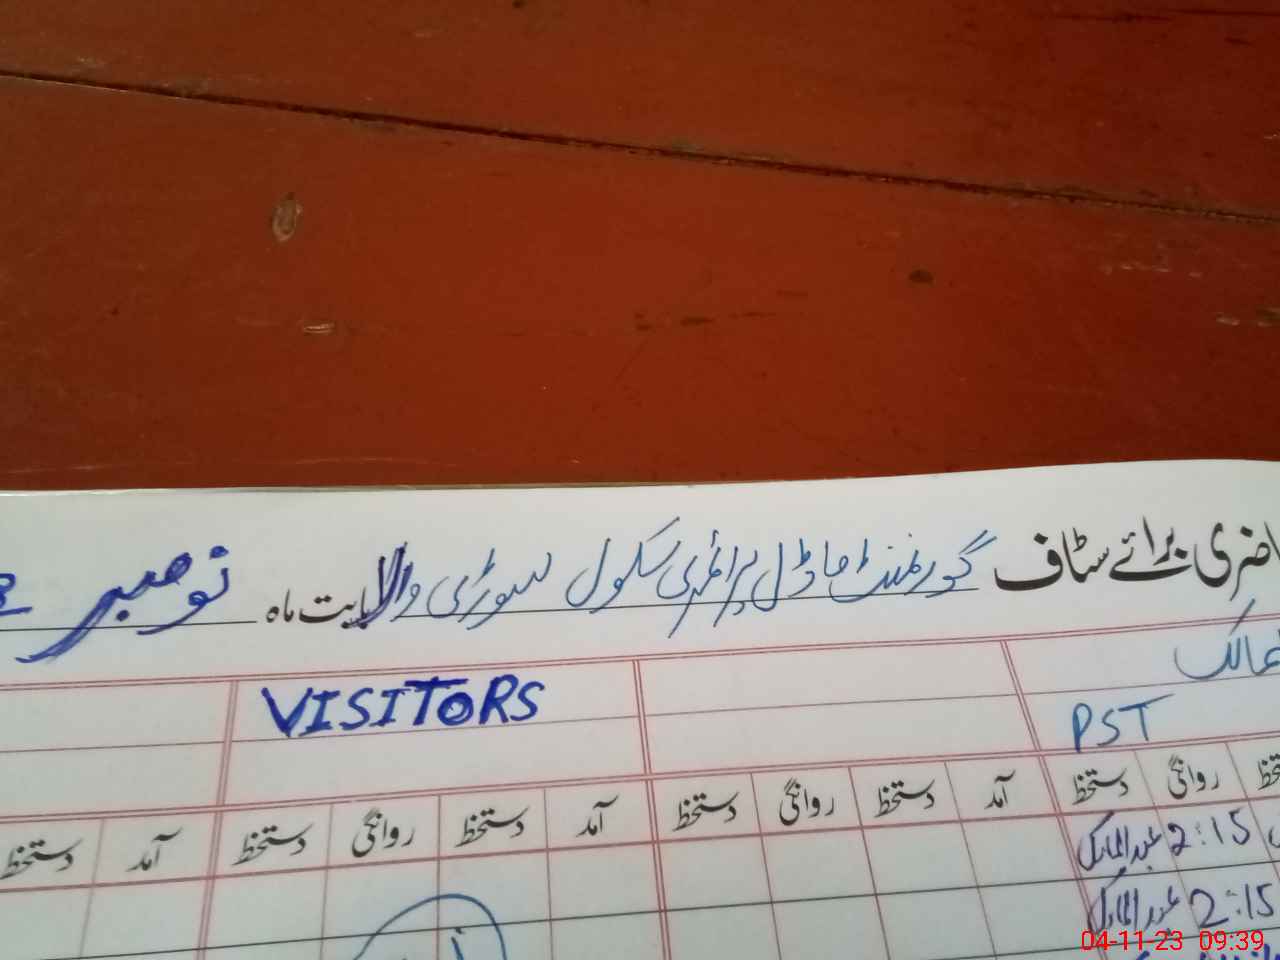 حاضری برائے سٹاف گورنمنٹ ماڈل پرائمری سکول سوڑی والا بابت ماہ نومبر
VISITORS
PST
دستخط روانگی دستخط آمد دستخط روانگی دستخط آمد دستخط روانگی دستخط آمد
عبدالمالک 2:15
عبدالمالک 2:15
04-11-23 09:39